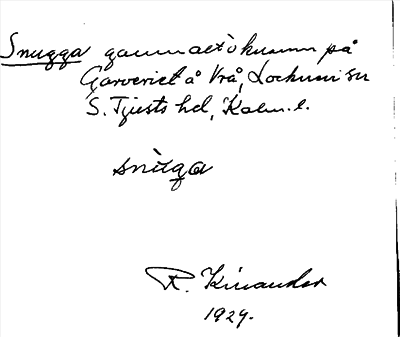 Snugga gammalt öknamn på
Garveriet å Vrå, Lockneví sn
S. Tjusts hd, Kalm. l.
snùga
R. Kinander
1929.